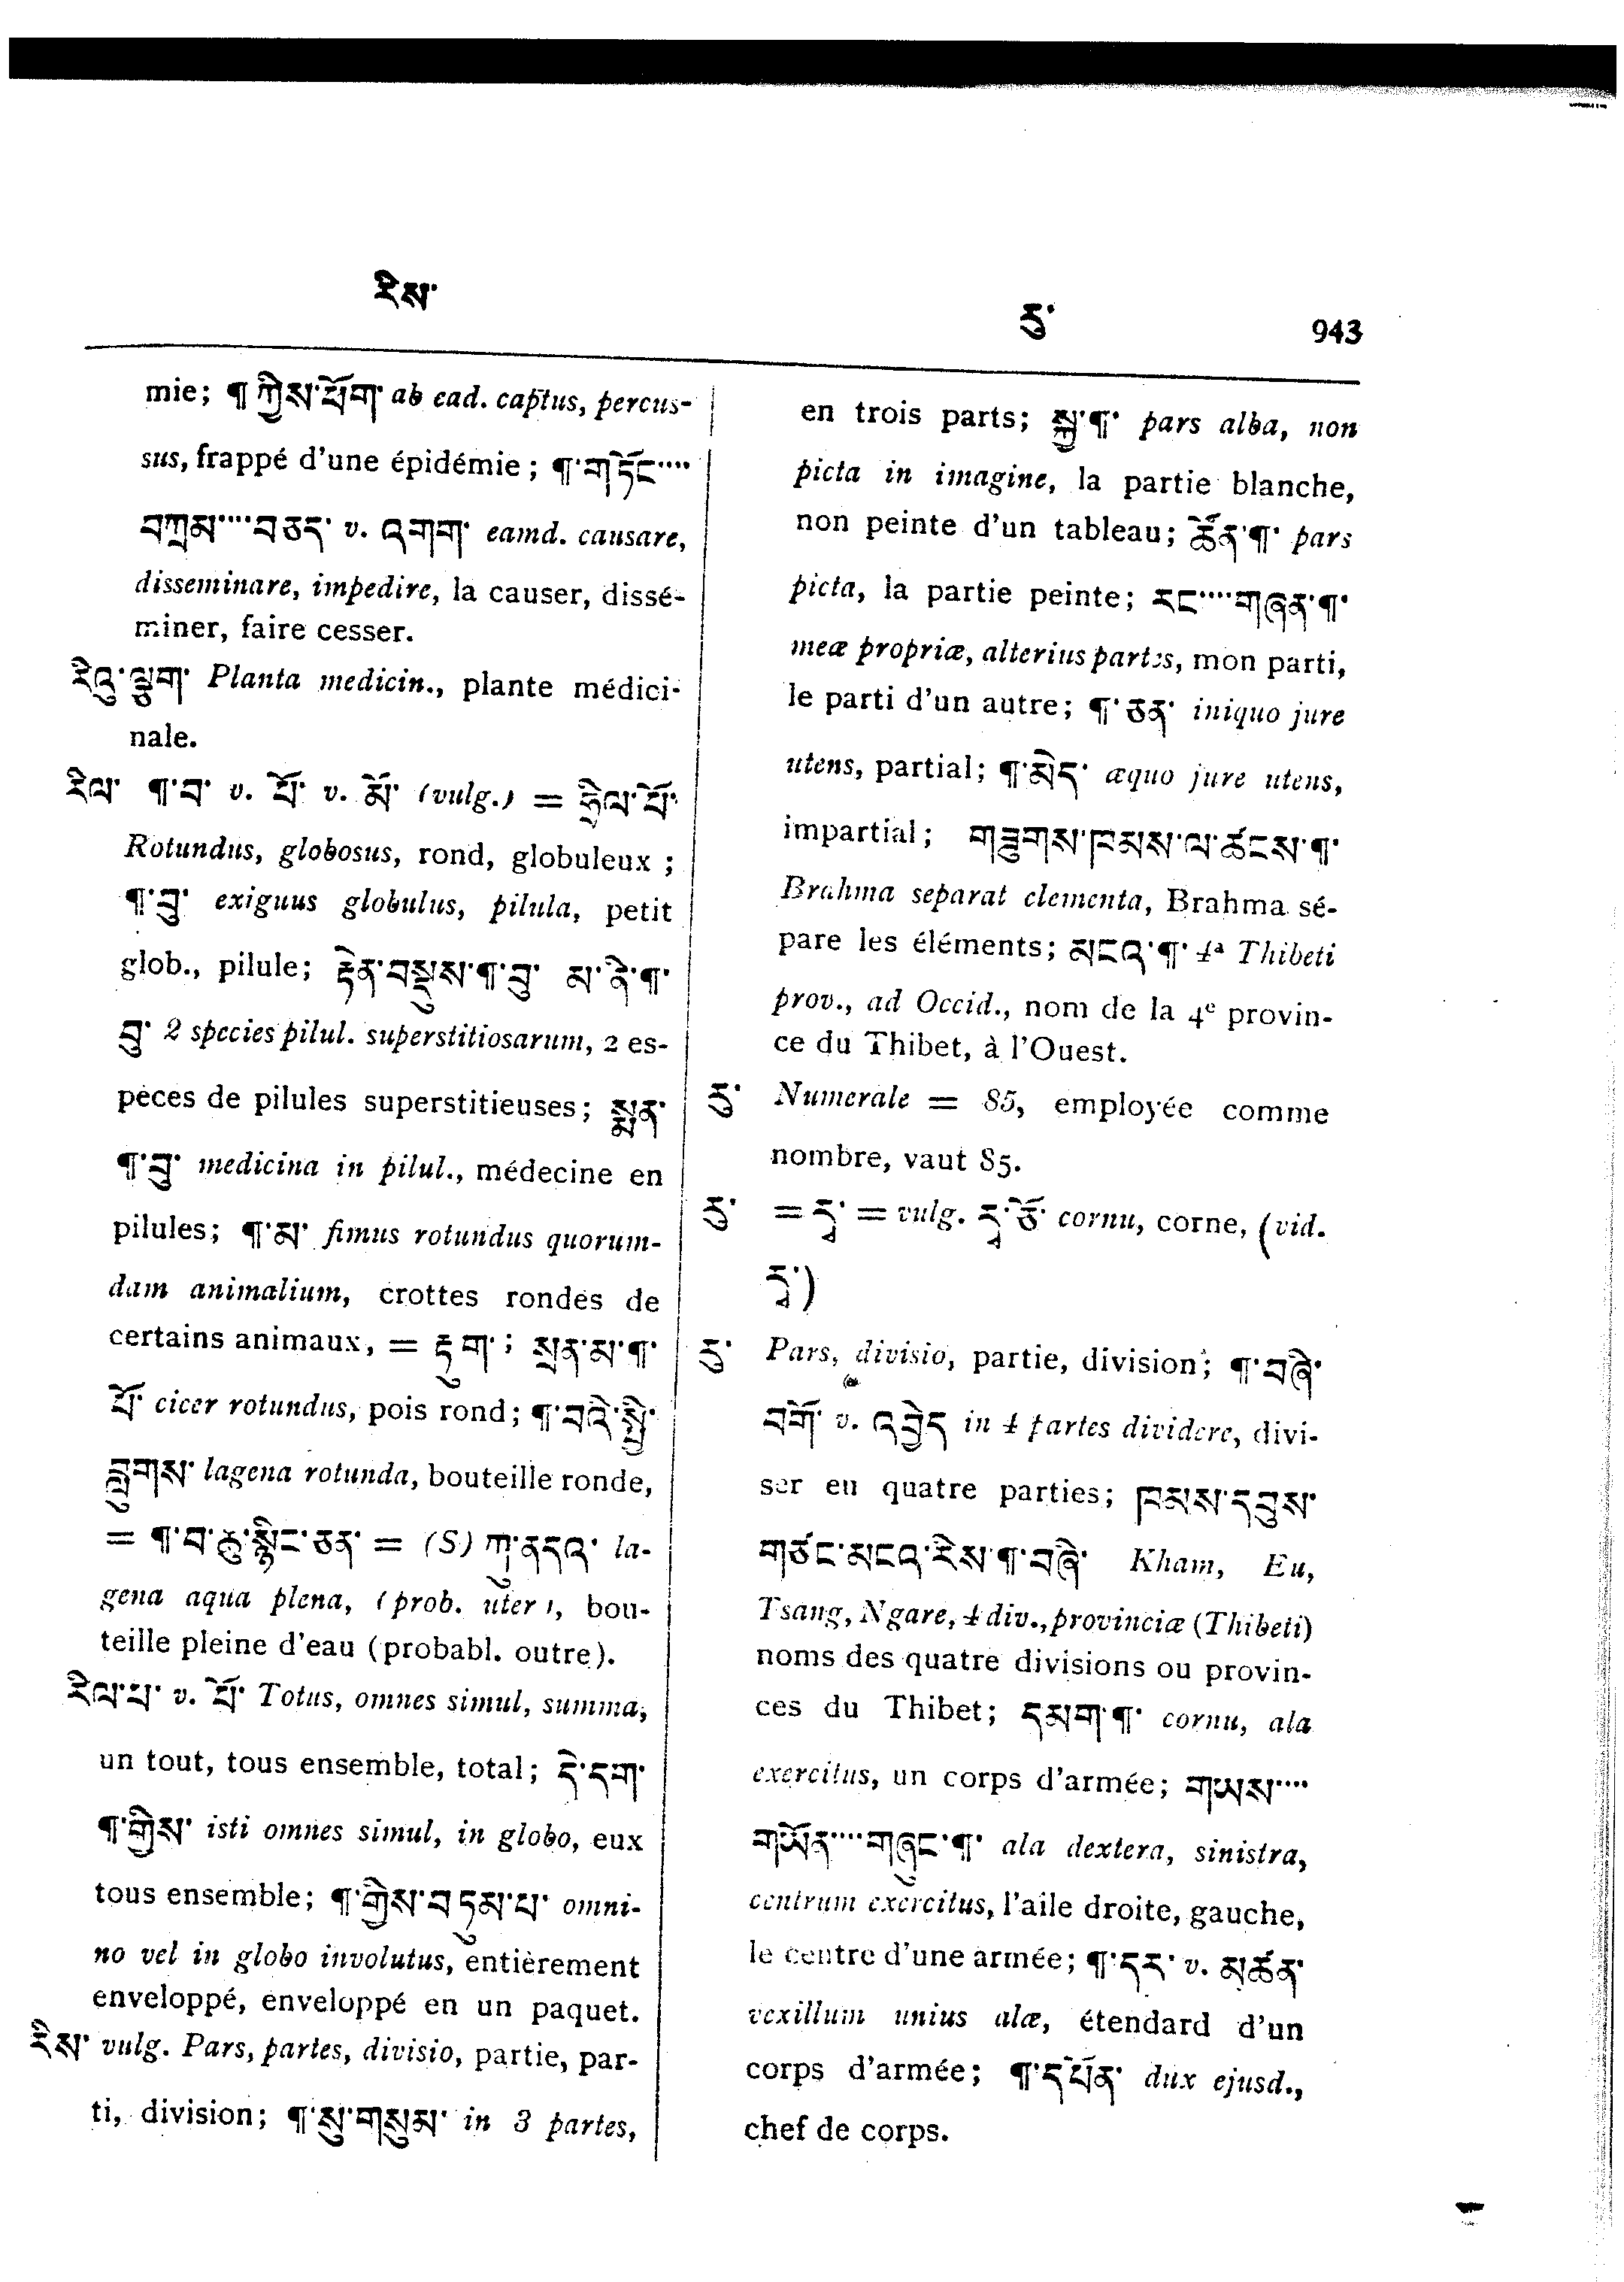 རིས་
རུ་
943
mie; ¶ ཀྱིས་ཕོག་ ab ead. captus, percus-
sus, frappé d'une épidémie; ¶་གཏོང་...
བཀྲམ་...བཅད་ v. འགག་ eamd. causare,
disseminare, impedire, la causer, dissé-
miner, faire cesser.
རིའུ་ལྕུག་ Planta medicin., plante médici-
nale.
རིལ་ ¶་བ་ v. པོ་ v. མོ་ (vulg.) = ཧྲིལ་པོ་
Rotundus, globosus, rond, globuleux ;
¶་བུ་ exiguus globulus, pilula, petit
glob., pilule; རྟེན་བསྡུས་¶་བུ་ མ་ནི་¶་
བུ་ 2 species pilul. superstitiosarum, 2 es-
pèces de pilules superstitieuses; སྨན་
¶་བུ་ medicina in pilul., médecine en
pilules; ¶་མ་ fimus rotundus quorum-
dam animalium, crottes rondes de
certains animaux, = རྟུག་; སྲན་མ་¶་
པོ་ cicer rotundus, pois rond; ¶་བའི་སྤྱི་
བླུགས་ lagena rotunda, bouteille ronde,
= ¶་བ་ཆུ་སྙིང་ཅན་ = (S) ཀུ་ནདའ་ la-
gena aqua plena, (prob. uter), bou-
teille pleine d'eau (probabl. outre).
རིལ་པ་ v. པོ་ Totus, omnes simul, summa,
un tout, tous ensemble, total; དེ་དག་
¶་གྱིས་ isti omnes simul, in globo, eux
tous ensemble; ¶་གྱིས་བཏུམ་པ་ omni-
no vel in globo involutus, entièrement
enveloppé, enveloppé en un paquet.
རིས་ vulg. Pars, partes, divisio, partie, par-
ti, division; ¶་སུ་གསུམ་ in 3 partes,
en trois parts; སྐྱ་¶་ pars alba, non
picta in imagine, la partie blanche,
non peinte d'un tableau; ཚོན་¶་ pars
picta, la partie peinte; རང་...གཞན་¶་
meæ propriæ, alterius partes, mon parti,
le parti d'un autre; ¶་ཅན་ iniquo jure
utens, partial; ¶་མེད་ æquo jure utens,
impartial; གཟུགས་ཁམས་ལ་ཚངས་¶་
Brahma separat elementa, Brahma sé-
pare les éléments; མངའ་¶་ 4ª Thibeti
prov., ad Occid., nom de la 4e provin-
ce du Thibet, à l'Ouest.
རུ་ Numerale = 85, employée comme
nombre, vaut 85.
རུ་ = རྭ་ = vulg. རྭ་ཅོ་ cornu, corne, (vid.
རྭ་)
རུ་ Pars, divisio, partie, division; ¶་བཞི་
བགོ་ v. འབྱེད in 4 partes dividere, divi-
ser en quatre parties; ཁམས་དབུས་
གཙང་མངའ་རིས་¶་བཞི་ Kham, Eu,
Tsang, Ngare, 4 div., provinciæ (Thibeti)
noms des quatre divisions ou provin-
ces du Thibet; དམག་¶་ cornu, ala
exercitus, un corps d'armée; གཡས་...
གཡོན་...གཞུང་¶་ ala dextera, sinistra,
centrum exercitus, l'aile droite, gauche,
le centre d'une armée; ¶་དར་ v. མཚོན་
vexillum unius alæ, étendard d'un
corps d'armée; ¶་དཔོན་ dux ejusd.,
chef de corps.